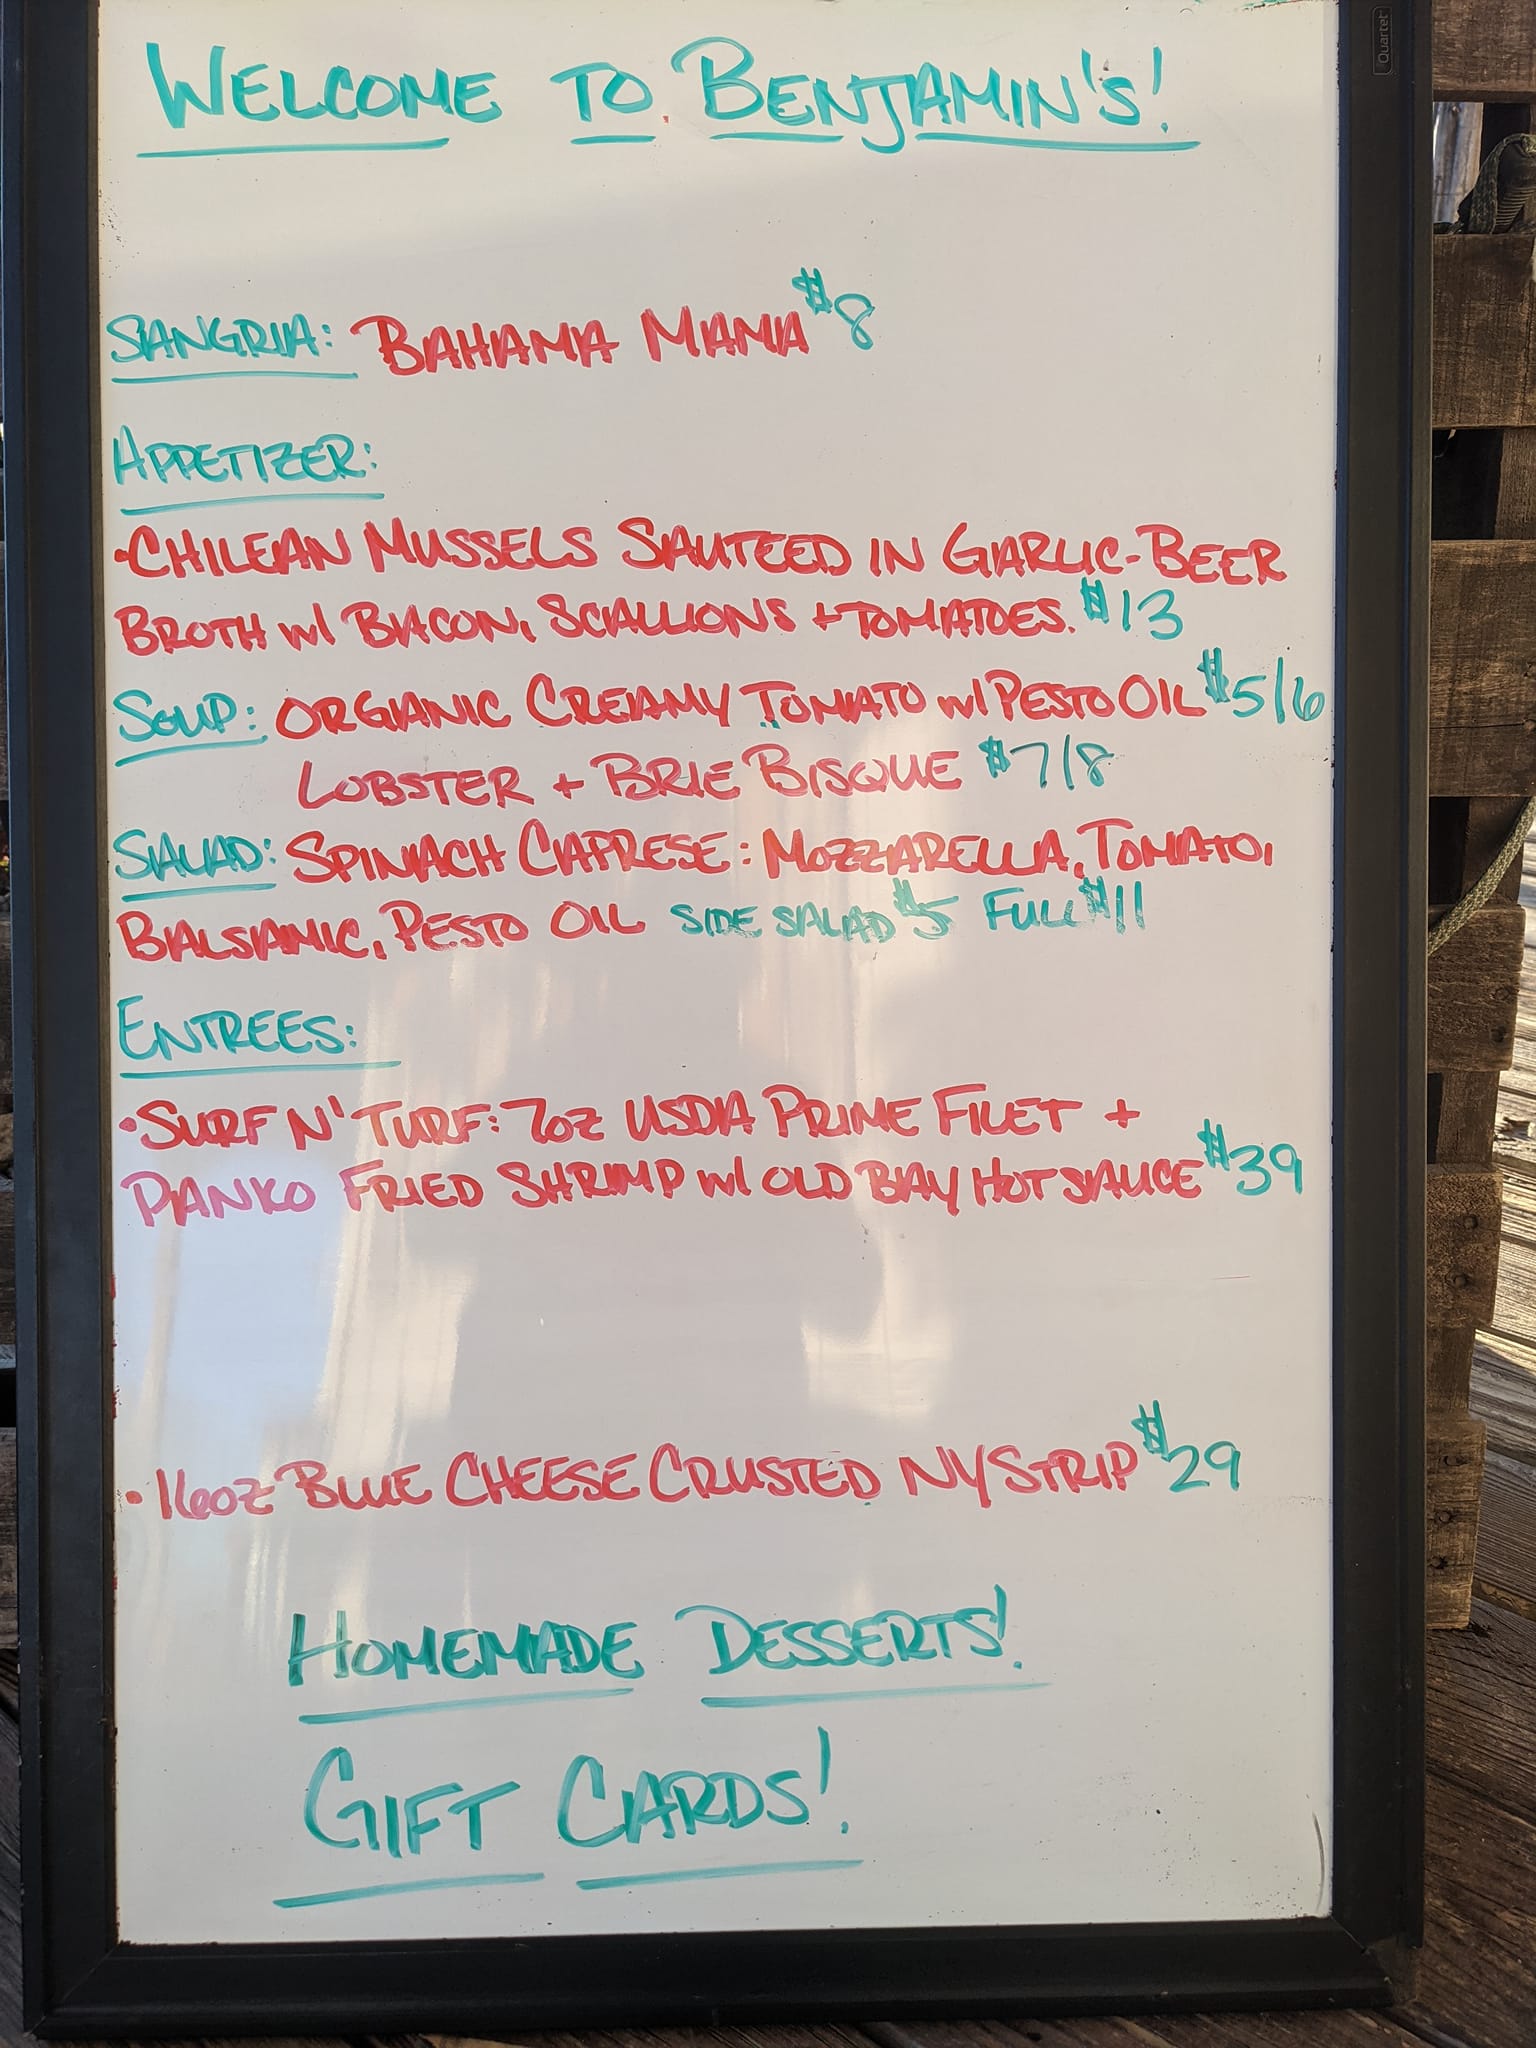 Quartet
WELCOME TO BENJAMIN'S!
SANGRIA: BAHAMA MAMA $8
APPETIZER:
•CHILEAN MUSSELS SAUTEED IN GARLIC-BEER
BROTH w/ BACON, SCALLIONS + TOMATOES. $13
SOUP: ORGANIC CREAMY TOMATO w/ PESTO OIL $5/6
LOBSTER + BRIE BISQUE $7/8
SALAD: SPINACH CAPRESE: MOZZARELLA, TOMATO,
BALSAMIC, PESTO OIL SIDE SALAD $5 FULL $11
ENTREES:
•SURF N' TURF: 7oz USDA PRIME FILET +
PANKO FRIED SHRIMP w/ OLD BAY HOT SAUCE $39
•16oz BLUE CHEESE CRUSTED NY STRIP $29
HOMEMADE DESSERTS!
GIFT CARDS!